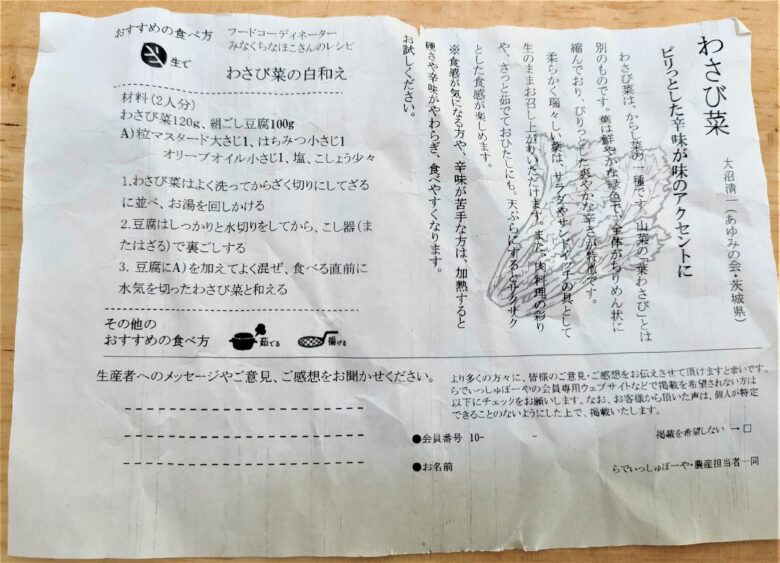 わさび菜
大沼清一(あゆみの会・茨城県)
ピリっとした辛味が味のアクセントに
わさび菜は、からし菜の一種です。山菜の「葉わさび」とは
別のものです。葉は鮮やかな緑色で、全体がちりめん状に
縮んでおり、ぴりっとした爽やかな辛さが特徴です。
柔らかく瑞々しい葉は、サラダやサンドイッチの具として
生のままお召し上がりいただけます。また、肉料理の彩り
や、さっと茹でておひたしにも。天ぷらにするとサクサク
とした食感が楽しめます。
※食感が気になる方や、辛味が苦手な方は、加熱すると
硬さや辛味がやわらぎ、食べやすくなります。
お試しください。
おすすめの食べ方
フードコーディネーター
みなくちなほこさんのレシピ
生で
わさび菜の白和え
材料(2人分)
わさび菜120g、絹ごし豆腐100g
A)粒マスタード大さじ1、はちみつ小さじ1
オリーブオイル小さじ1、塩、こしょう少々
1.わさび菜はよく洗ってからざく切りにしてざる
に並べ、お湯を回しかける
2.豆腐はしっかりと水切りをしてから、こし器(ま
たはざる)で裏ごしする
3. 豆腐にA)を加えてよく混ぜ、食べる直前に
水気を切ったわさび菜と和える
その他の
おすすめの食べ方
茹でる
揚げる
生産者へのメッセージやご意見、ご感想をお聞かせください。
より多くの方々に、皆様のご意見・ご感想をお伝えさせて頂けますと幸いです。
らでぃっしゅぼーやの会員専用ウェブサイトなどで掲載を希望されない方は
以下にチェックをお願いします。なお、お客様から頂いた声は、個人が特定
できることのないようにした上で、掲載いたします。
●会員番号 10- -
掲載を希望しない →□
●お名前
らでぃっしゅぼーや・農産担当者一同